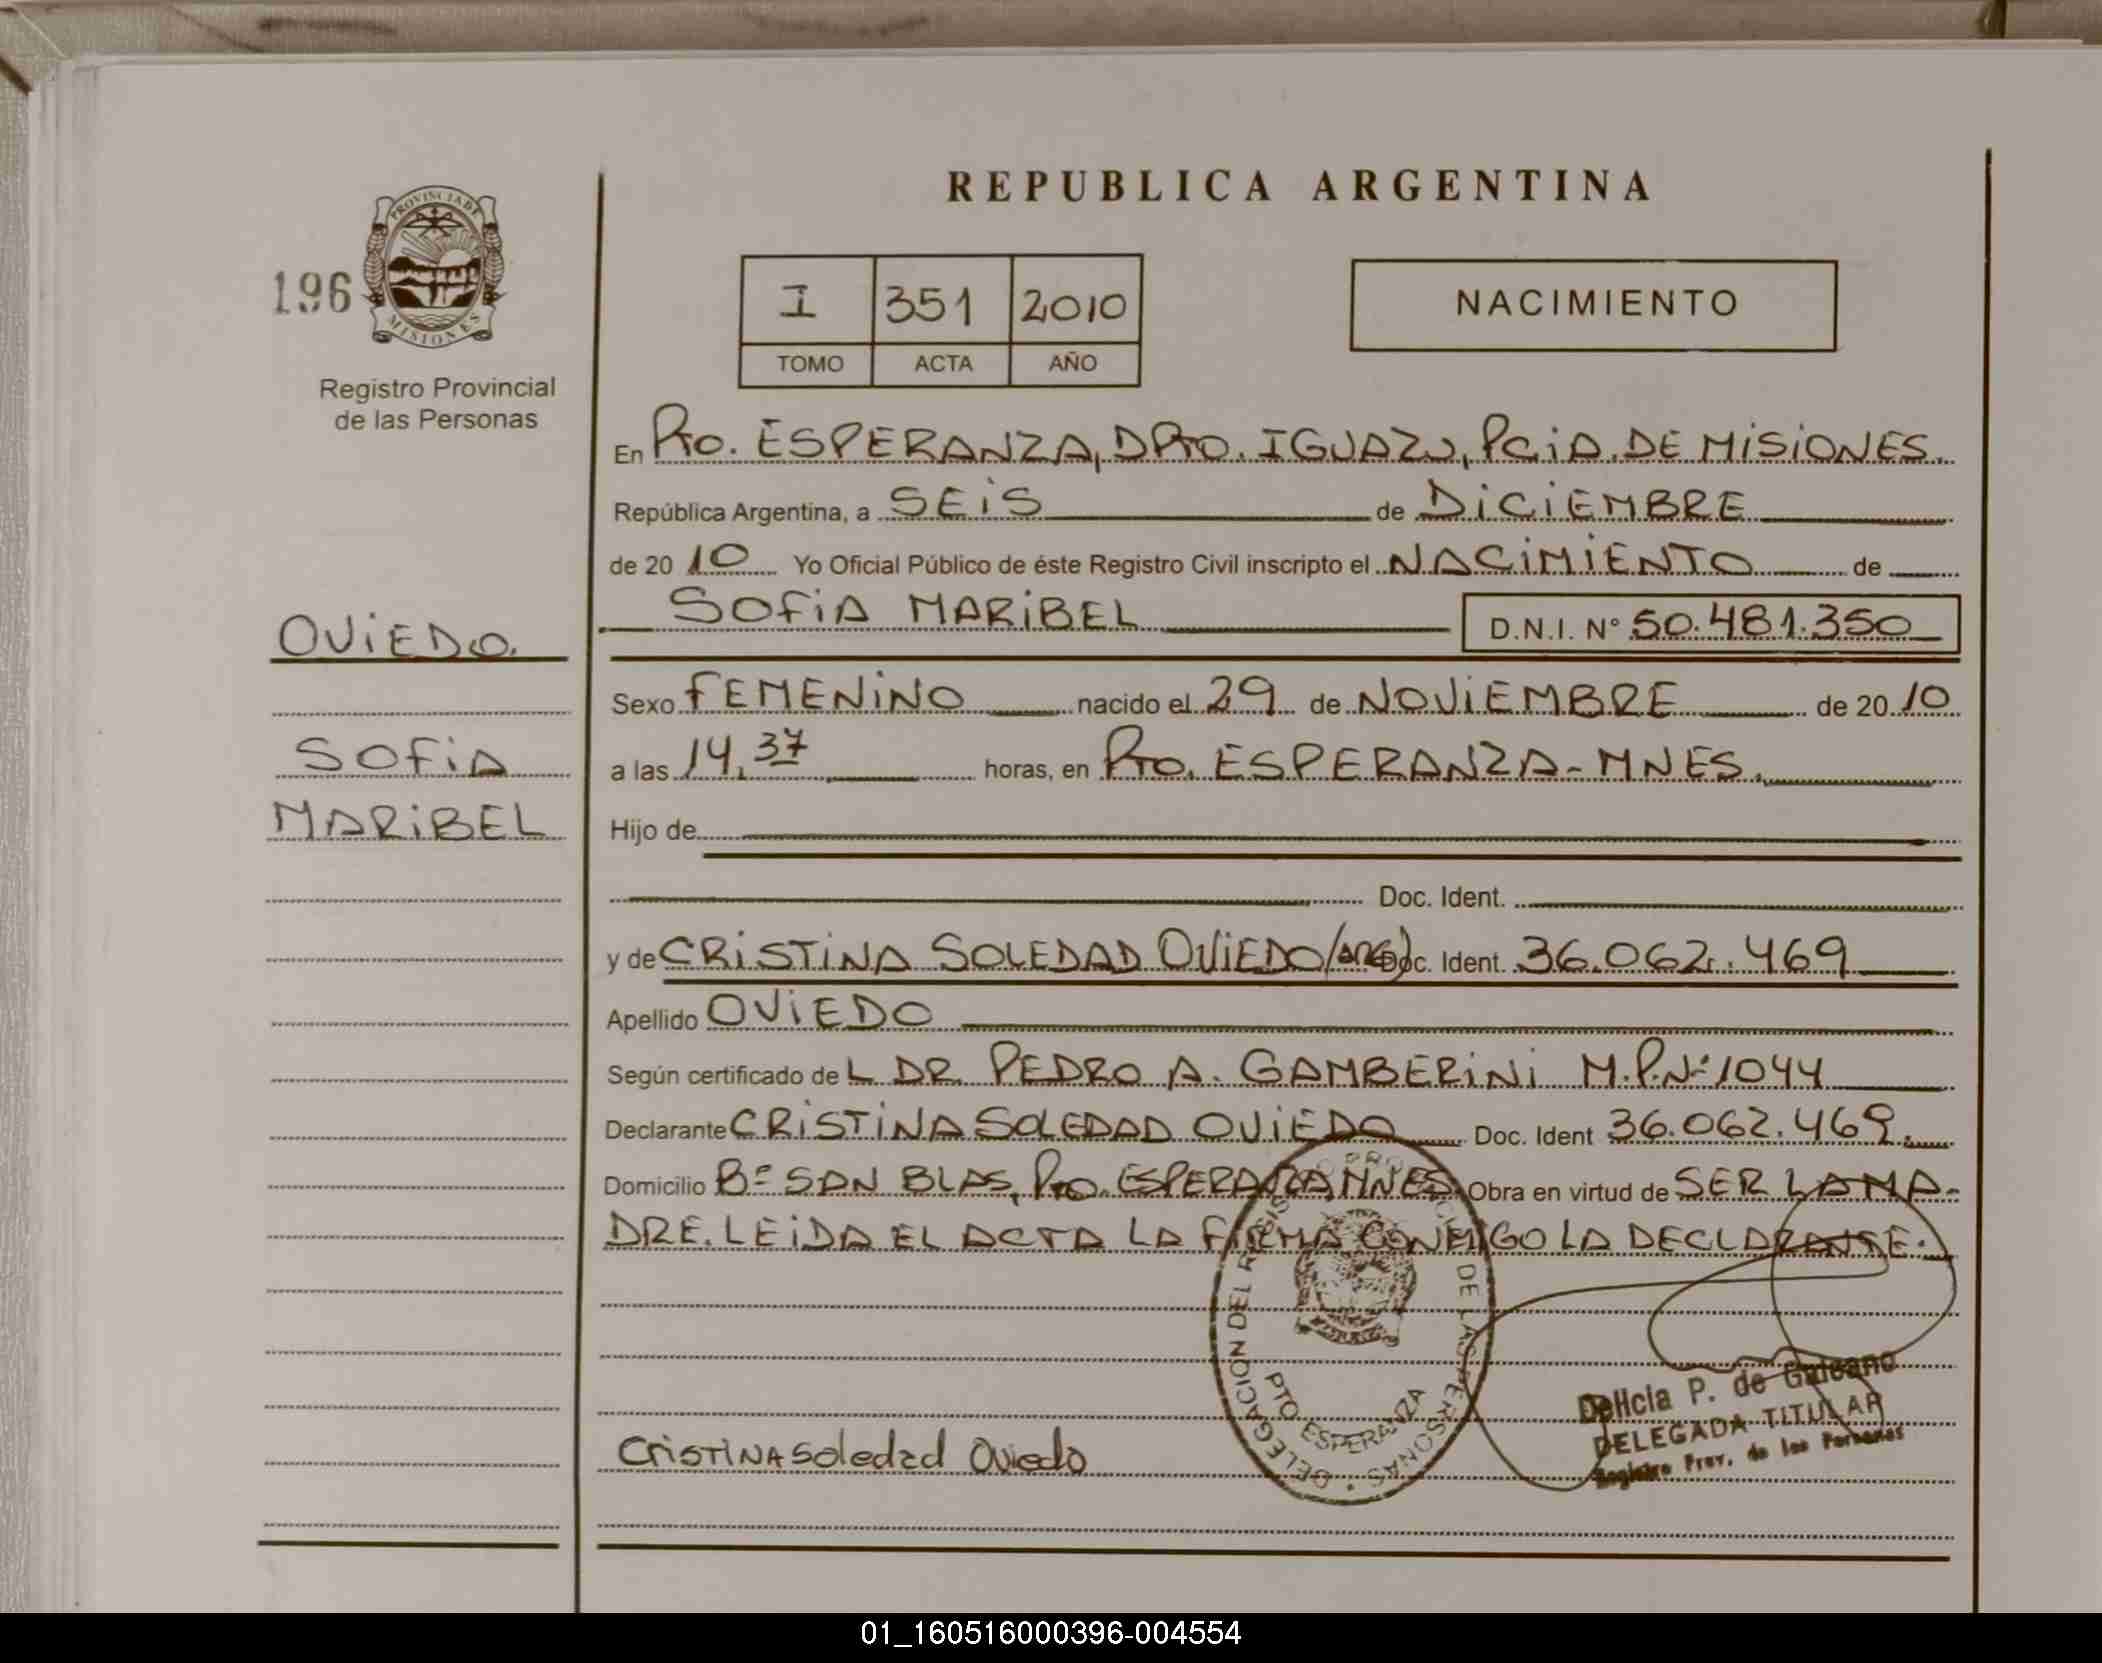 REPUBLICA ARGENTINA
196
PROVINCIA DE MISIONES
Registro Provincial
de las Personas
I 351 2010
TOMO ACTA AÑO
NACIMIENTO
En Pto. ESPERANZA, DPTO. IGUAZU, PCiA. DE MiSiONES.
República Argentina, a SEiS de DiCiEMBRE
de 20 10 Yo Oficial Público de éste Registro Civil inscripto el NACiMiENTO de
SOFiA MARiBEL D.N.I. N° 50.481.350
OViEDO.
Sexo FEMENiNO nacido el 29 de NOViEMBRE de 20 10
SOFiA
a las 14,37 horas, en Pto. ESPERANZA-MNES.
MARiBEL
Hijo de
Doc. Ident.
y de CRiSTiNA SOLEDAD OViEDO (ARG) Doc. Ident. 36.062.469
Apellido OViEDO
Según certificado de L DR. PEDRO A. GAMBERiNi M.P.N° 1044
Declarante CRiSTiNA SOLEDAD OViEDO Doc. Ident 36.062.469.
Domicilio B° SAN BLAS, Pto. ESPERANZA, MNES. Obra en virtud de SER LA MA-
DRE. LEiDA EL ACTA LA FiRMA CONMiGO LA DECLARANTE.
DELEGACION DEL REGISTRO PROVINCIAL DE LAS PERSONAS
PTO. ESPERANZA
Delicia P. de Galeano
DELEGADA TITULAR
Registro Prov. de las Personas
CRiSTiNA Soledad Oviedo
01_160516000396-004554